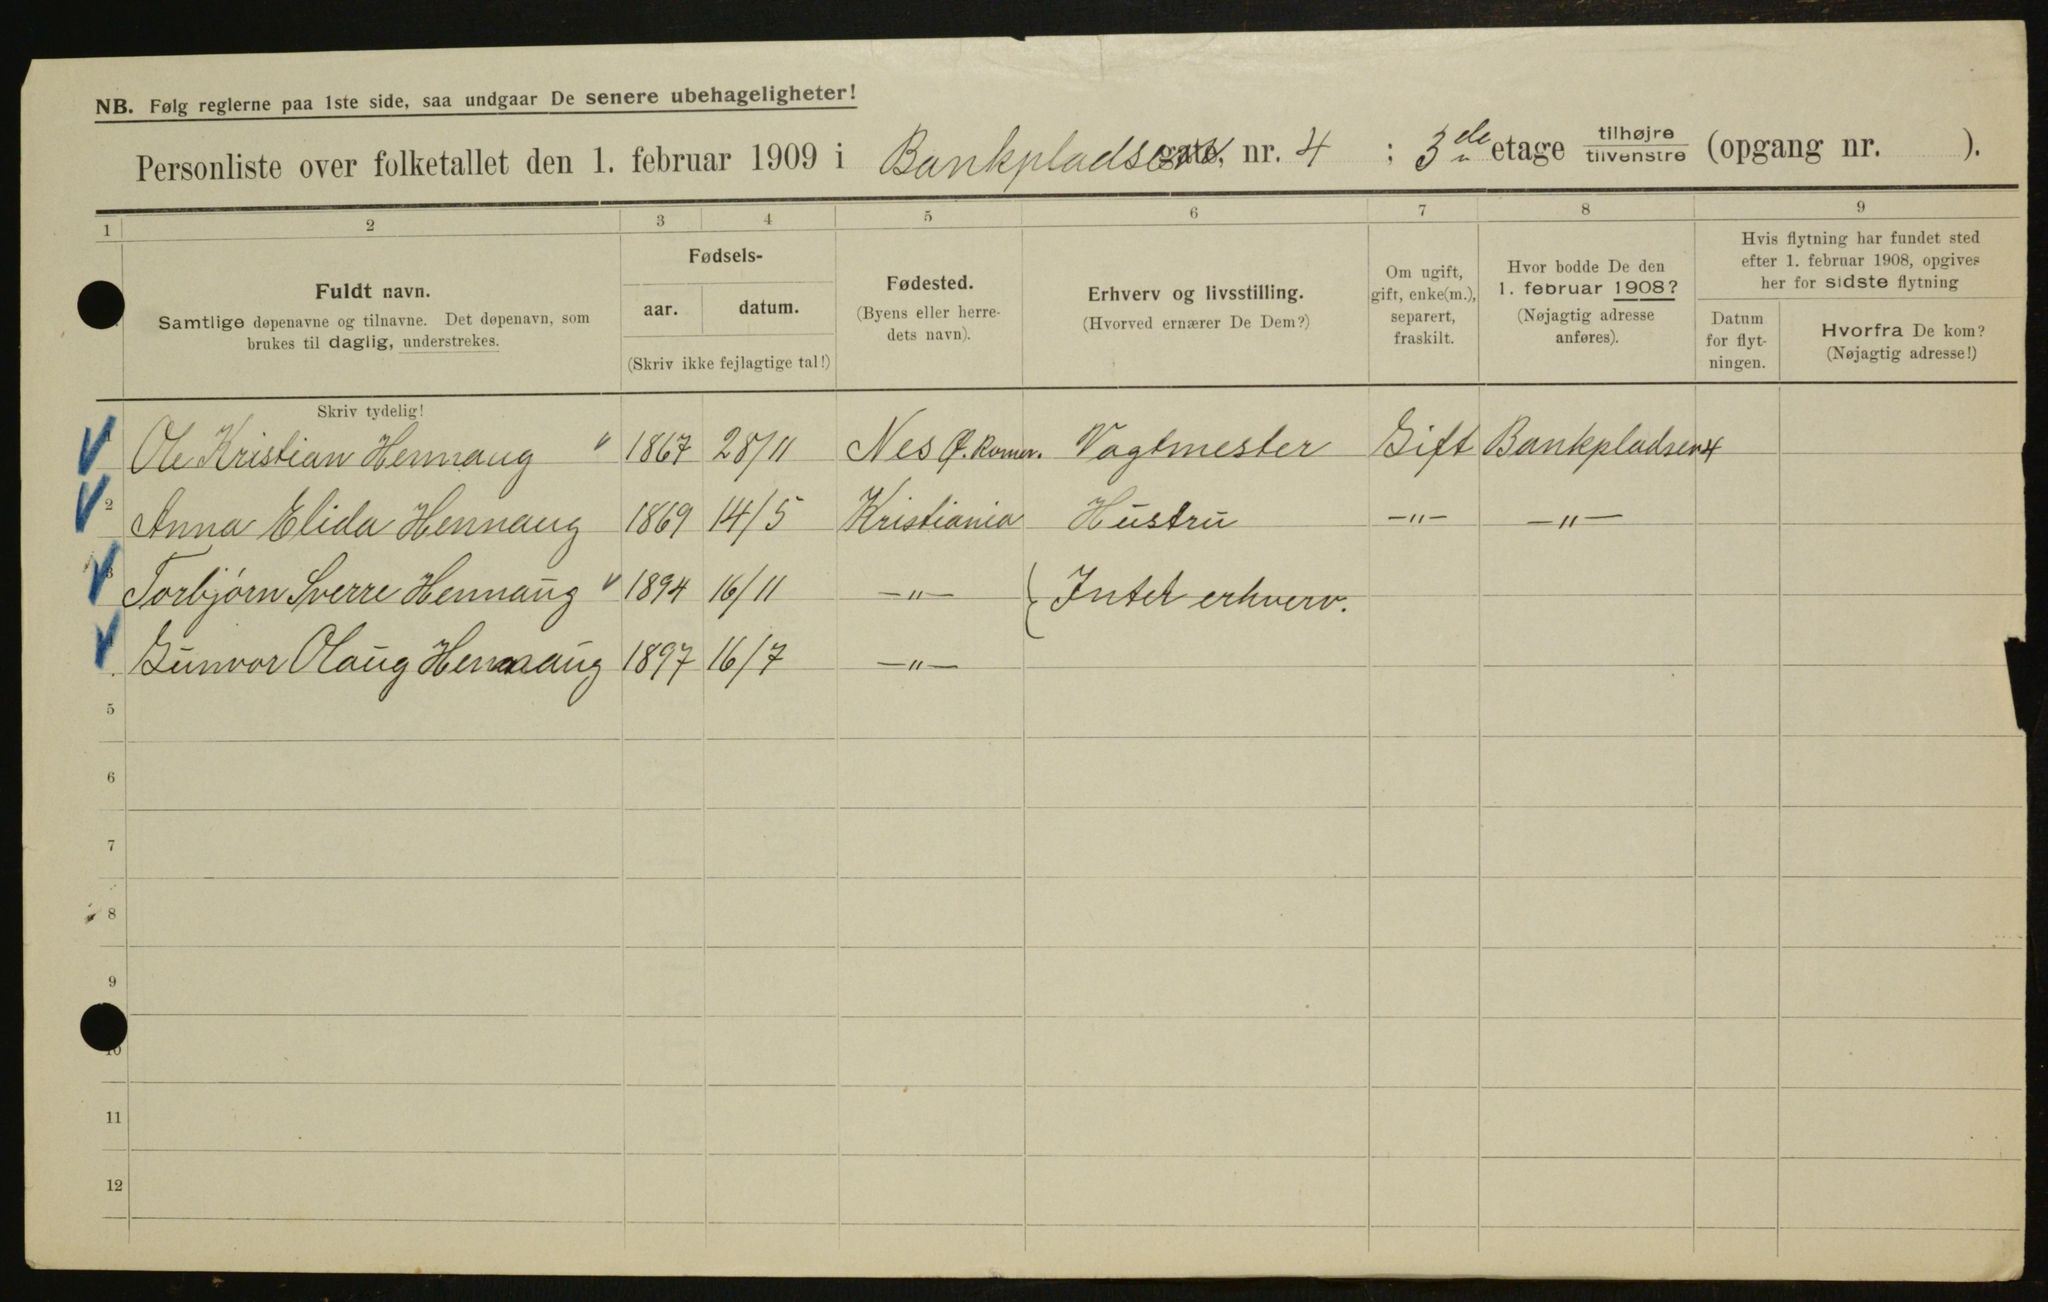 NB. Følg reglerne paa 1ste side, saa undgaar De senere ubehageligheter!
Personliste over folketallet den 1. februar 1909 i Bankpladsen gate, nr. 4 ; 3de etage tilhøjre tilvenstre (opgang nr. ).
1 2 3 4 5 6 7 8 9
Fuldt navn.
Samtlige døpenavne og tilnavne. Det døpenavn, som
brukes til daglig, understrekes.
Fødsels-
aar. datum.
(Skriv ikke fejlagtige tal!)
Fødested.
(Byens eller herre-
dets navn).
Erhverv og livsstilling.
(Hvorved ernærer De Dem?)
Om ugift,
gift, enke(m.),
separert,
fraskilt.
Hvor bodde De den
1. februar 1908?
(Nøjagtig adresse
anføres).
Hvis flytning har fundet sted
efter 1. februar 1908, opgives
her for sidste flytning
Datum
for flyt-
ningen.
Hvorfra De kom?
(Nøjagtig adresse!)
Skriv tydelig!
Ole Kristian Hennaug " 1867 28/11 Nes Ø. Romer. Vagtmester Gift Bankpladsen 4
2 Anna Elida Hennaug 1869 14/5 Kristiania Hustru —"— —"—
3 Torbjørn Sverre Hennaug " 1894 16/11 —"— { Intet erhverv.
Gunvor Olaug Hennaug 1897 16/7 —"—
5
6
7
8
9
10
11
12